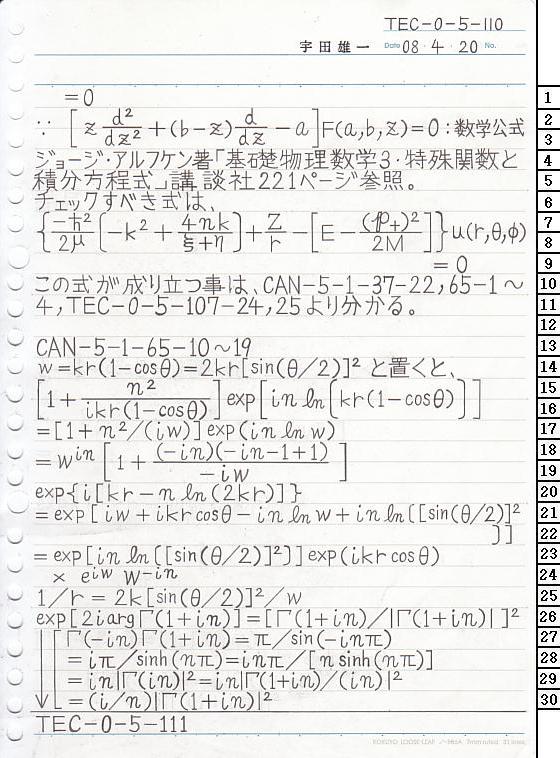 TEC-0-5-110
宇田雄一 Date 08・4・20 No.
=0
∵ [z d²/dz² + (b-z) d/dz - a]F(a,b,z)=0:数学公式
ジョージ・アルフケン著「基礎物理数学3・特殊関数と
積分方程式」講談社221ページ参照。
チェックすべき式は、
{-ħ²/2μ [-k² + 4nk/ξ+η] + Z/r - [E - (𝓅₊)²/2M]}u(r,θ,φ)
=0
この式が成り立つ事は、CAN-5-1-37-22,65-1~
4,TEC-0-5-107-24,25より分かる。
CAN-5-1-65-10~19
w=kr(1-cosθ)=2kr[sin(θ/2)]² と置くと、
[1 + n²/ikr(1-cosθ)] exp[in ln[kr(1-cosθ)]]
=[1+n²/(iw)]exp(in ln w)
=w^in [1 + (-in)(-in-1+1)/-iw]
exp{i[kr-n ln(2kr)]}
=exp[iw+ikrcosθ-in ln w+in ln[[sin(θ/2)]²
]]
=exp[in ln[[sin(θ/2)]²]]exp(ikrcosθ)
× e^iw w^-in
1/r=2k[sin(θ/2)]²/w
exp[2iargΓ(1+in)]=[Γ(1+in)/|Γ(1+in)|]²
Γ(-in)Γ(1+in)=π/sin(-inπ)
=iπ/sinh(nπ)=inπ/[n sinh(nπ)]
=in|Γ(in)|²=in|Γ(1+in)/(in)|²
=(i/n)|Γ(1+in)|²
TEC-0-5-111
1
2
3
4
5
6
7
8
9
10
11
12
13
14
15
16
17
18
19
20
21
22
23
24
25
26
27
28
29
30